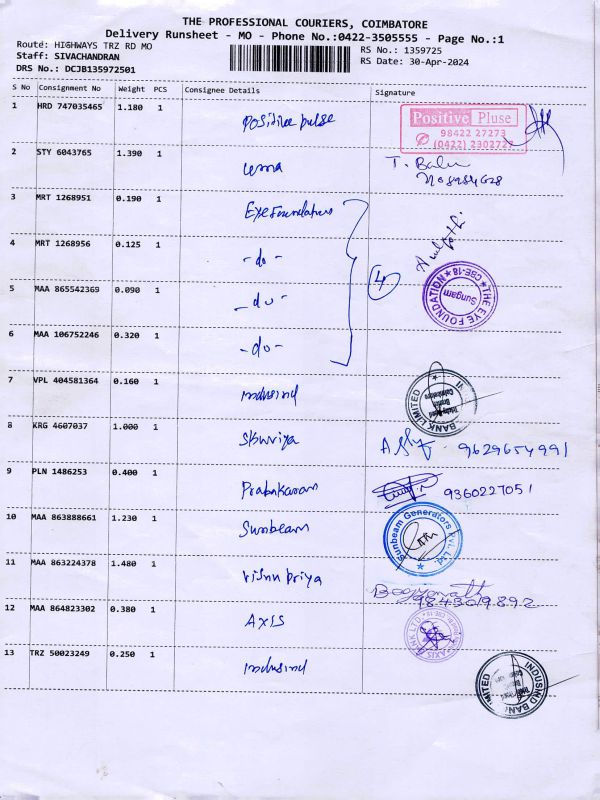 THE PROFESSIONAL COURIERS, COIMBATORE
Delivery Runsheet - MO - Phone No.:0422-3505555 - Page No.:1
Route: HIGHWAYS TRZ RD MO
RS No.: 1359725
Staff: SIVACHANDRAN
RS Date: 30-Apr-2024
DRS No.: DCJB135972501
S No Consignment No Weight PCS Consignee Details Signature
1 HRD 747035465 1.180 1 Positive pulse
Positive Pluse
98422 27273
(0422) 2302727
2 STY 6043765 1.390 1 uma T. Balu
3 MRT 1268951 0.190 1 Eye Foundation
4 MRT 1268956 0.125 1 -do-
4
5 MAA 865542369 0.090 1 -do-
THE EYE FOUNDATION
CBE-18
Sungam
6 MAA 106752246 0.320 1 -do-
7 VPL 404581364 0.160 1 Indusind
BANK LIMITED
8 KRG 4607037 1.000 1 9629654991
9 PLN 1486253 0.400 1 Prabakaran 9360227051
10 MAA 863888661 1.230 1 Sunbeam
Sunbeam Generators Pvt. Ltd.
11 MAA 863224378 1.480 1 Vishnu priya
9843019892
12 MAA 864823302 0.380 1 AXIS
AXIS BANK LTD
13 TRZ 50023249 0.250 1 Indusind
INDUSIND BANK LIMITED